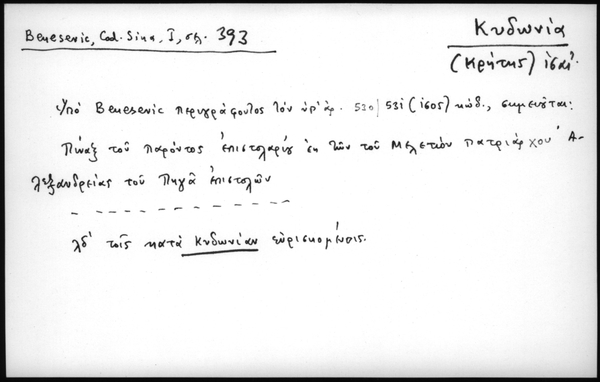 Benesevic, Cod. Sina, I, σελ. 393
Κυδωνία
(Κρήτης)
Ὑπὸ Benesevic περιγράφοντος τὸν ὑπ' ἀρ. 530/531 (ι0ος) κώδ., σημειοῦται:
Πίναξ τοῦ παρόντος ἐπιστολαρίου ἐκ τῶν τοῦ Μελετίου πατριάρχου Ἀ-
λεξανδρείας τοῦ Πηγᾶ ἐπιστολῶν
λδ' τοῖς κατὰ Κυδωνίαν εὑρισκομένοις.